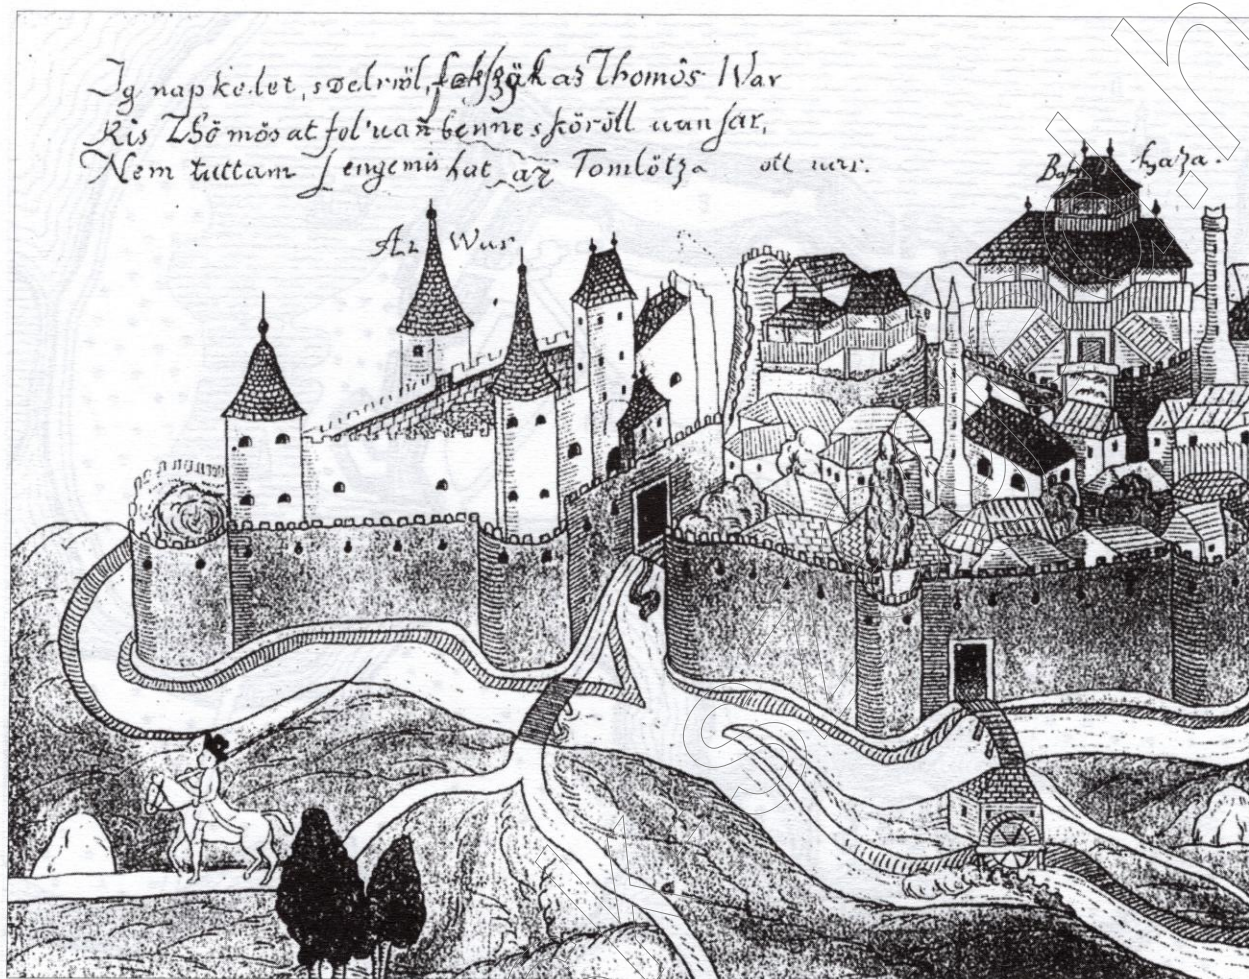 Ig nap kelet, s delről, fekszik az Thomôs War
Kis Thômôs at fol' uañ benne s köröll uan sar,
Nem tuttam Sengemis hat az Tomlötza ott uar.
Az War
haza.